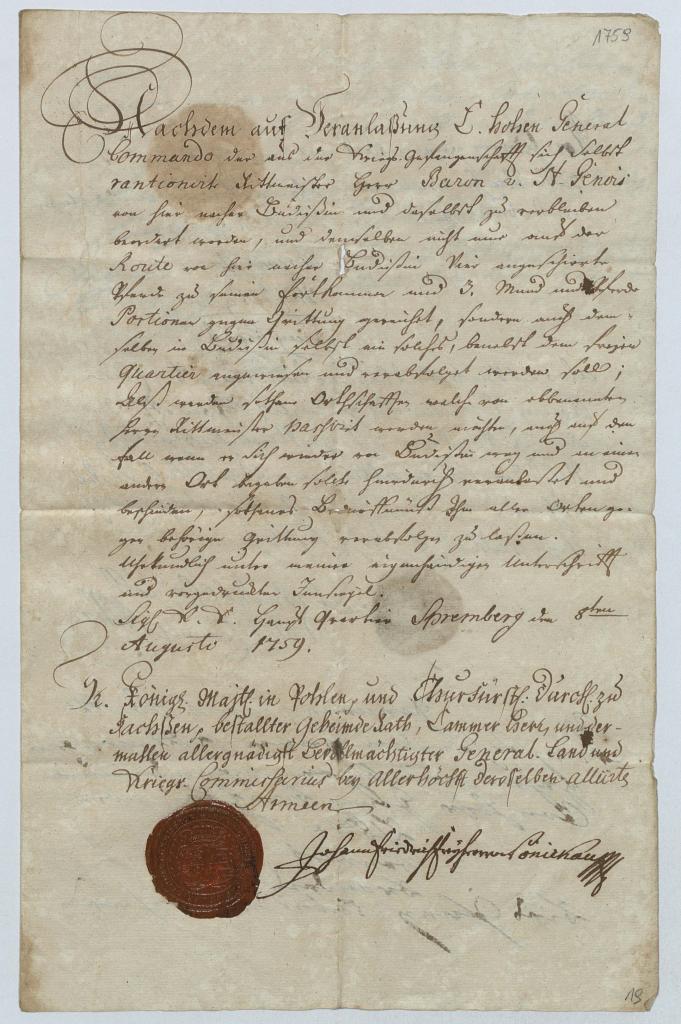 1759
Nachdem auf Veranlaßung E. hohen General
Commando der aus der Kriegs-Gefangenschafft sich selbst
rantionirte Rittmeister Herr Baron v. St. Genois
von hier nacher Budißin und daselbst zu verbleiben
beordert worden, und demselben nicht nur auf der
Route von hier nacher Budißin Vier angeschirrte
Pferde zu seinen Fortkommen und 3. Mund und Pferde
Portionen gegen Quittung gereichet, sondern auch dem-
selben in Budißin selbst ein solches, benebst dem freyen
Quartier angewiesen und verabfolget werden soll;
Alß werden Orthschafften welche von obbenannten
Herrn Rittmeister passiret werden möchten, auch auf den
Fall wenn er sich wieder von Budißin weg und an einen
andern Ort begeben solte hierdurch veranlaßet und
beschieden, Ihm aller Orten ge-
gen behörige Quittung verabfolgen zu laßen.
Uhrkundlich unter meiner eigenhändigen Unterschrifft
und vorgedruckten Innsiegel.
Sigl. Haupt Quartier Spremberg den 8ten
Augusti 1759.
K. Königl. Majtt. in Pohlen, und Churfürstl. Durchl. zu
Sachßen, bestallter Geheimde Rath, Cammer Herr, und der-
mahlen allergnädigst Bevollmächtigter General-Land und
Kriegs-Commissarius bey Allerhöchst deroselben alliirte
Armeen
Johann Friedrich
19